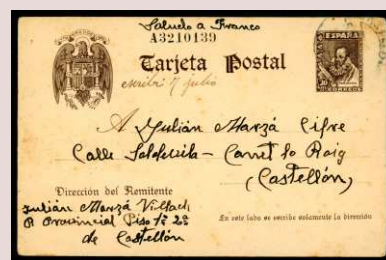 Saludo a Franco
A3210139
ESPAÑA
Tarjeta Postal
CORREOS
escribí 7 julio
A Julián Marzá Cifre
Calle Salde - Canet lo Roig
(Castellón)
Dirección del Remitente
Julián Marzá Villach
P Provincial Piso 1º 2ª
de Castellón
En este lado se escribe solamente la dirección